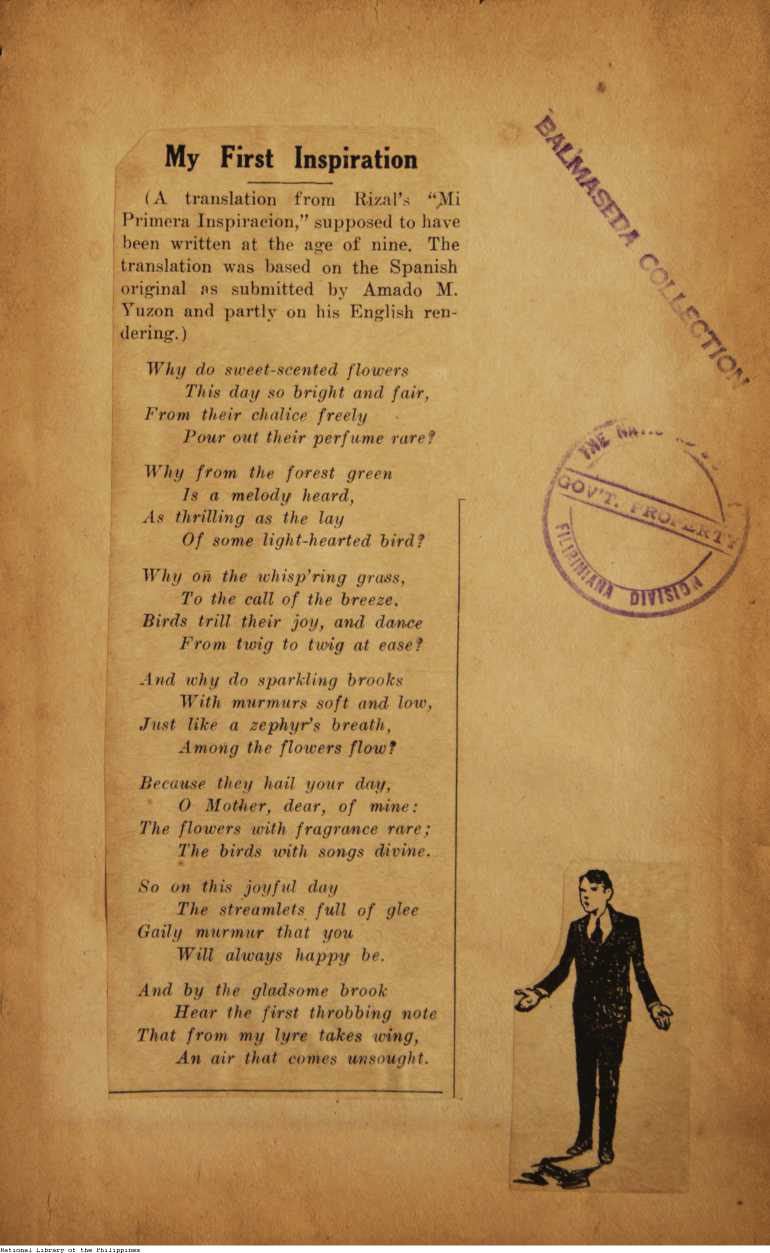 My First Inspiration
(A translation from Rizal's "Mi
Primera Inspiracion," supposed to have
been written at the age of nine. The
translation was based on the Spanish
original as submitted by Amado M.
Yuzon and partly on his English ren-
dering.)
Why do sweet-scented flowers
This day so bright and fair,
From their chalice freely
Pour out their perfume rare?
Why from the forest green
Is a melody heard,
As thrilling as the lay
Of some light-hearted bird?
Why on the whisp'ring grass,
To the call of the breeze,
Birds trill their joy, and dance
From twig to twig at ease?
And why do sparkling brooks
With murmurs soft and low,
Just like a zephyr's breath,
Among the flowers flow?
Because they hail your day,
O Mother, dear, of mine:
The flowers with fragrance rare;
The birds with songs divine.
So on this joyful day
The streamlets full of glee
Gaily murmur that you
Will always happy be.
And by the gladsome brook
Hear the first throbbing note
That from my lyre takes wing,
An air that comes unsought.
BALMASEDA COLLECTION
THE
GOV'T. PROPERTY
FILIPINIANA DIVISION
National Library of the Philippines